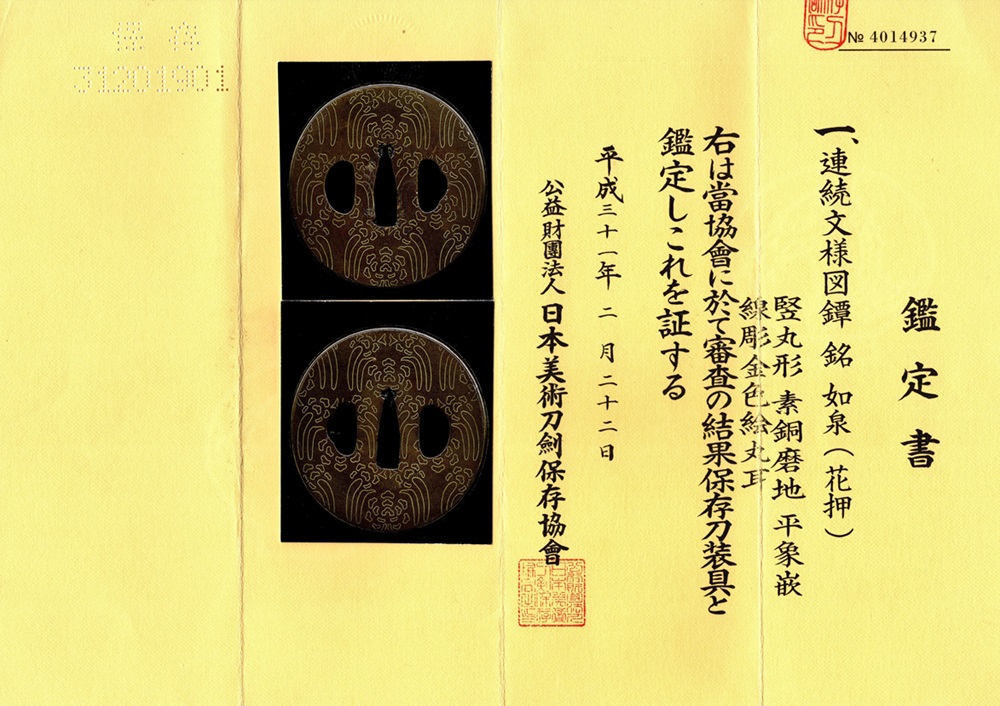 № 4014937
鑑定書
一、連続文様図鐔 銘 如泉(花押)
竪丸形 素銅磨地 平象嵌
線彫金色絵丸耳
右は當協會に於て審査の結果保存刀装具と
鑑定しこれを証する
平成三十一年 二月二十二日
公益財團法人 日本美術刀劍保存協會
保存
31201901